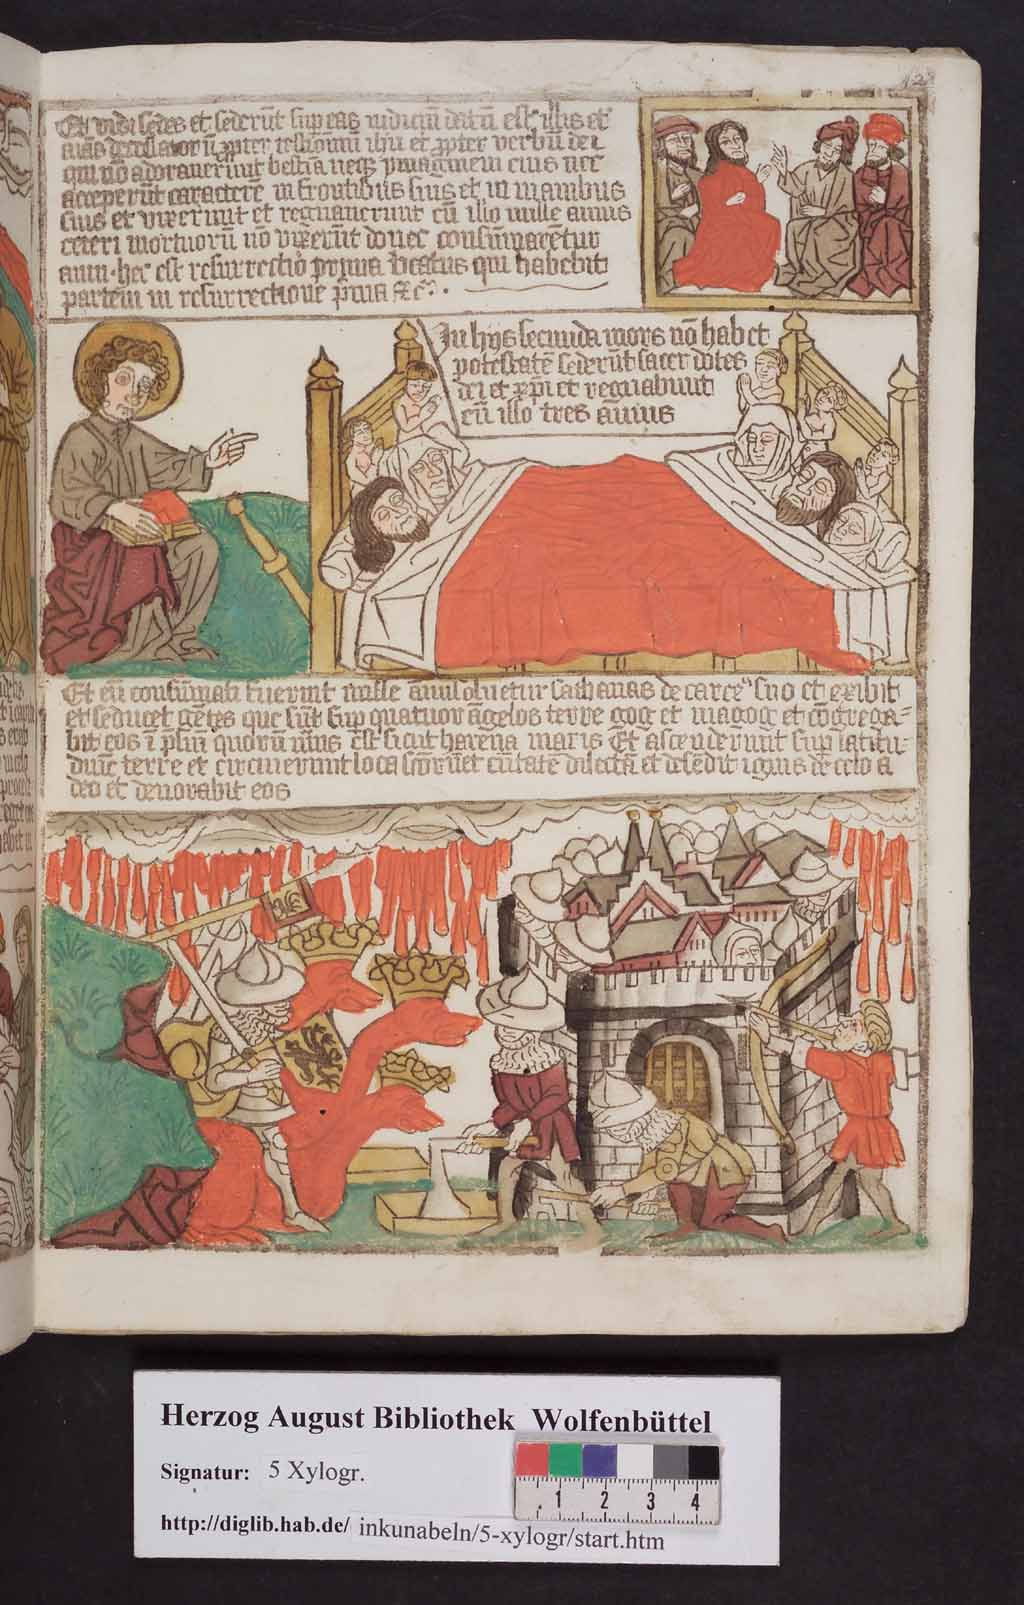 Et vidi sedes et sederūt sup eas iudiciū datū est illis et
aīas decollatorū ꝓpter testimoniū ihū et ꝓpter verbū dei
qui nō adoraverunt bestiā neqꝫ ymaginem eius nec
acceperūt caracterē in frontibus suis et in manibus
suis et vixerunt et regnaverunt cū illo mille annis
ceteri mortuorū nō vixerūt donec consūmarētur
anni · hec est resurrectio prima beatus qui habebit
partem in resurrectione prima
In hijs secunda mors nō habet
potestatē sederūt sacerdotes
dei et xpi et regnabunt
cū illo tres annis
Et cū consūmati fuerint mille anni solvetur sathanas de carcere suo et exibit
et seducet gētes que sūt sup quatuor āgelos terre gog et magog et cōgrega-
bit eos ī pliū quorū nūus est sicut harena maris Et ascenderunt sup latitu-
dinē terre et circuierunt loca scōrū et cīvitatē dilectā et descēdit ignis de celo a
deo et devorabit eos
Herzog August Bibliothek Wolfenbüttel
Signatur: 5 Xylogr.
http://diglib.hab.de/ inkunabeln/5-xylogr/start.htm
1 2 3 4